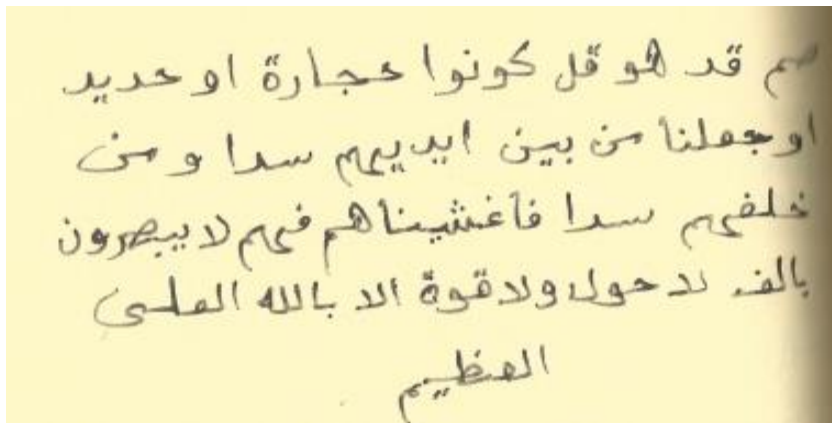 صم قد هو قل كونوا حجارة او حديد
او جعلنا من بين ايديهم سدا و من
خلفهم سدا فأغشيناهم فهم لا يبصرون
بالف لا حول ولا قوة الا بالله العلى
العظيم